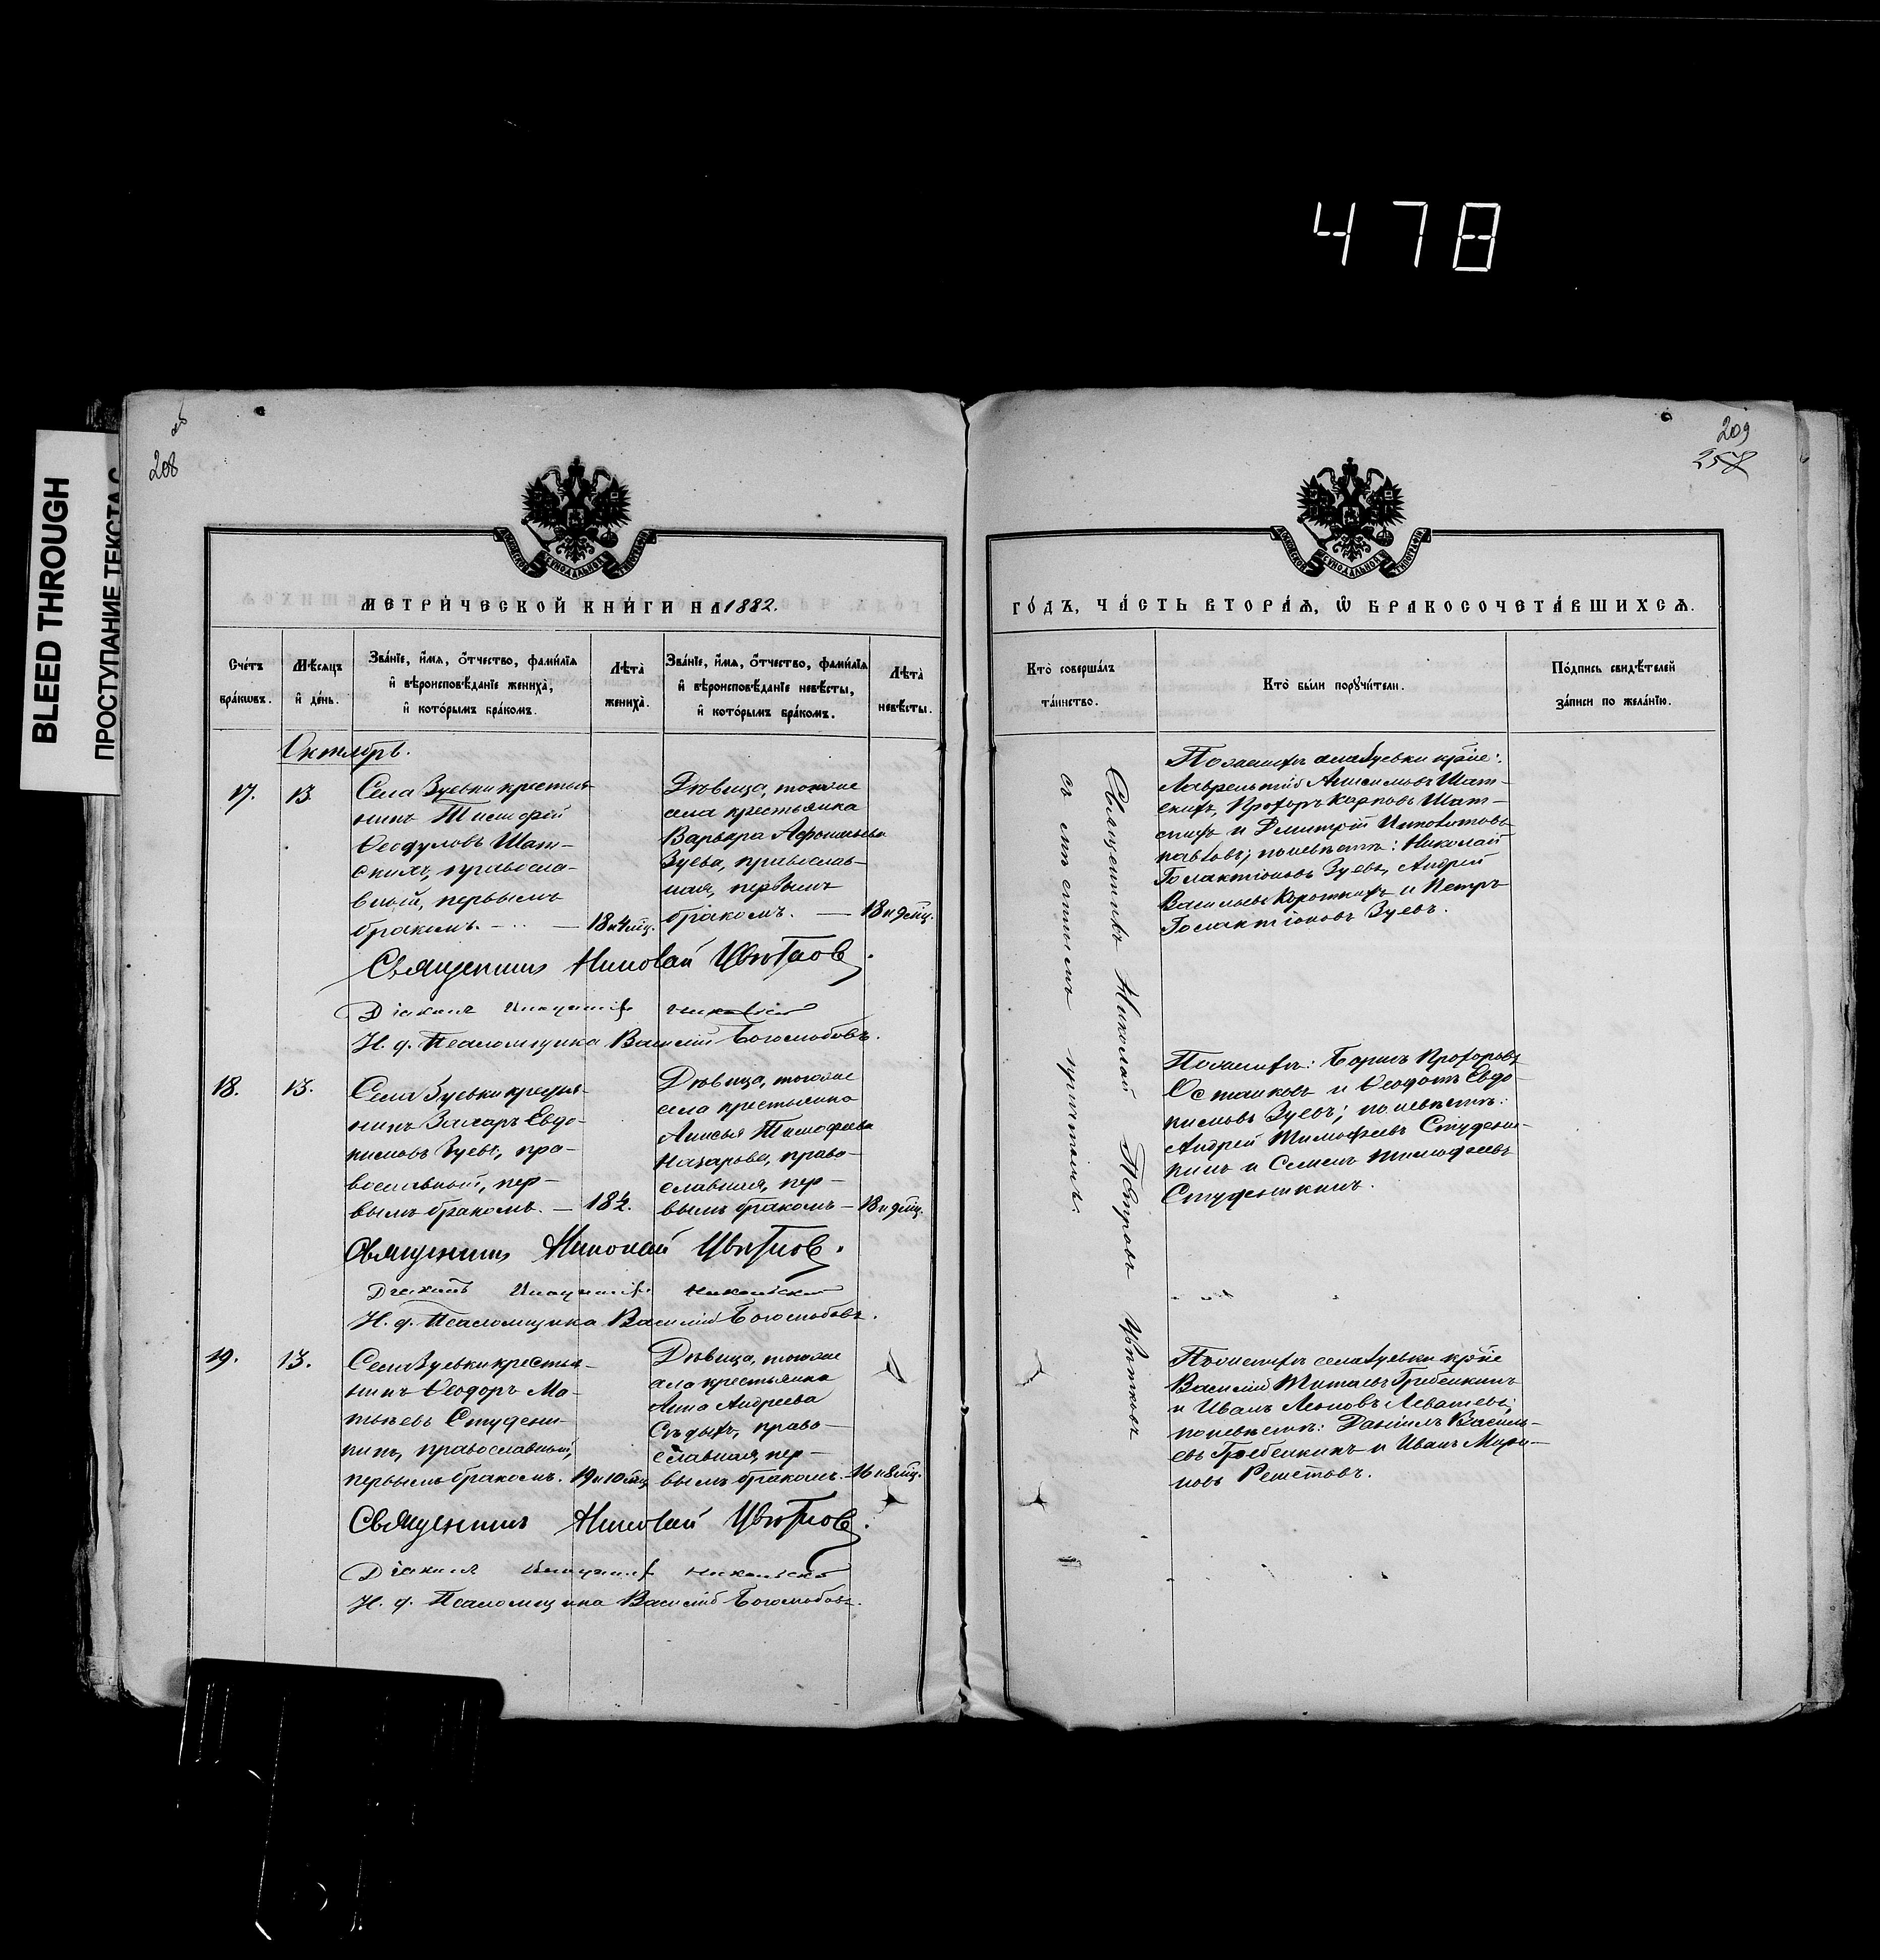 478
BLEED THROUGH
ПРОСТУПАНИЕ ТЕКСТА С
208
МЕТРИ́ЧЕСКОЙ КНИ́ГИ НА 1882.
Сче́тъ бра́кωвъ.
Мѣ́сяцъ и҆ де́нь.
Зва́нїе, и҆́мя, ѻ҆́тчество, фами́лїя и҆ вѣроисповѣ́данїе жениха̀, и҆ кото́рымъ бра́комъ.
Лѣта̀ жениха̀.
Зва́нїе, и҆́мя, ѻ҆́тчество, фами́лїя и҆ вѣроисповѣ́данїе невѣ́сты, и҆ кото́рымъ бра́комъ.
Лѣта̀ невѣ́сты.
Октябрь.
17.
13.
Села Зуевки крестья-
нинъ Тимофей
Ѳеодуловъ Шат-
скихъ, правосла-
вный, первымъ
бракомъ.
18 и 4 мѣц.
Дѣвица, тогоже
села крестьянка
Варвара Афонасьева
Зуева, православ-
ная, первымъ
бракомъ.
18 и 9 мѣц.
Священникъ Николай Цвѣтковъ.
Діаконъ Никольскій
И. д. Псаломщика Василій Боголюбовъ.
18.
13.
Села Зуевки крестья-
нинъ Захаръ Евдо-
кимовъ Зуевъ, пра-
вославный, пер-
вымъ бракомъ.
18½.
Дѣвица, тогоже
села крестьянка
Анисья Тимофеева
Назарова, право-
славная, пер-
вымъ бракомъ
18 и 9 мѣц.
Священникъ Николай Цвѣтковъ.
Діаконъ Никольскій
И. д. Псаломщика Василій Боголюбовъ.
19.
13.
Села Зуевки крестья-
нинъ Ѳеодоръ Ма-
твѣевъ Студени-
кинъ, православный,
первымъ бракомъ.
19 и 10 мѣц.
Дѣвица, тогоже
села крестьянка
Анна Андреева
Сѣдыхъ, право-
славная, пер-
вымъ бракомъ.
16 и 8 мѣц.
Священникъ Николай Цвѣтковъ.
Діаконъ Никольскій
И. д. Псаломщика Василій Боголюбовъ.
209
258
ГО́ДЪ, ЧА́СТЬ ВТОРА́Я, Ѽ БРАКОСОЧЕТА́ВШИХСЯ.
Кто̀ соверша́лъ та́инство.
Кто̀ бы́ли порꙋчи́тели.
По́дпись свидѣ́телей за́писи по жела́нїю.
Священникъ Николай Петровъ Цвѣтковъ
съ мѣстнымъ причтомъ.
По женихѣ села Зуевки кр-не:
Лаврентій Анисимовъ Шат-
скихъ, Прохоръ Карповъ Шат-
скихъ и Дмитрій Ипполитовъ
по невѣстѣ: Николай
Галактіоновъ Зуевъ, Андрей
Васильевъ Короткихъ и Петръ
Галактіоновъ Зуевъ.
По женихѣ: Борисъ Прохоровъ
Остапковъ и Ѳеодотъ Евдо-
кимовъ Зуевъ; по невѣстѣ:
Андрей Тимофѣевъ Студени-
кинъ и Семенъ Тимофеевъ
Студеникинъ.
По женихѣ села Зуевки кр-не
Василій Титаевъ Гребенкинъ
и Иванъ Леоновъ Левашевъ;
по невѣстѣ: Даніилъ Василь-
евъ Гребенкинъ и Иванъ Мари-
новъ Решетовъ.